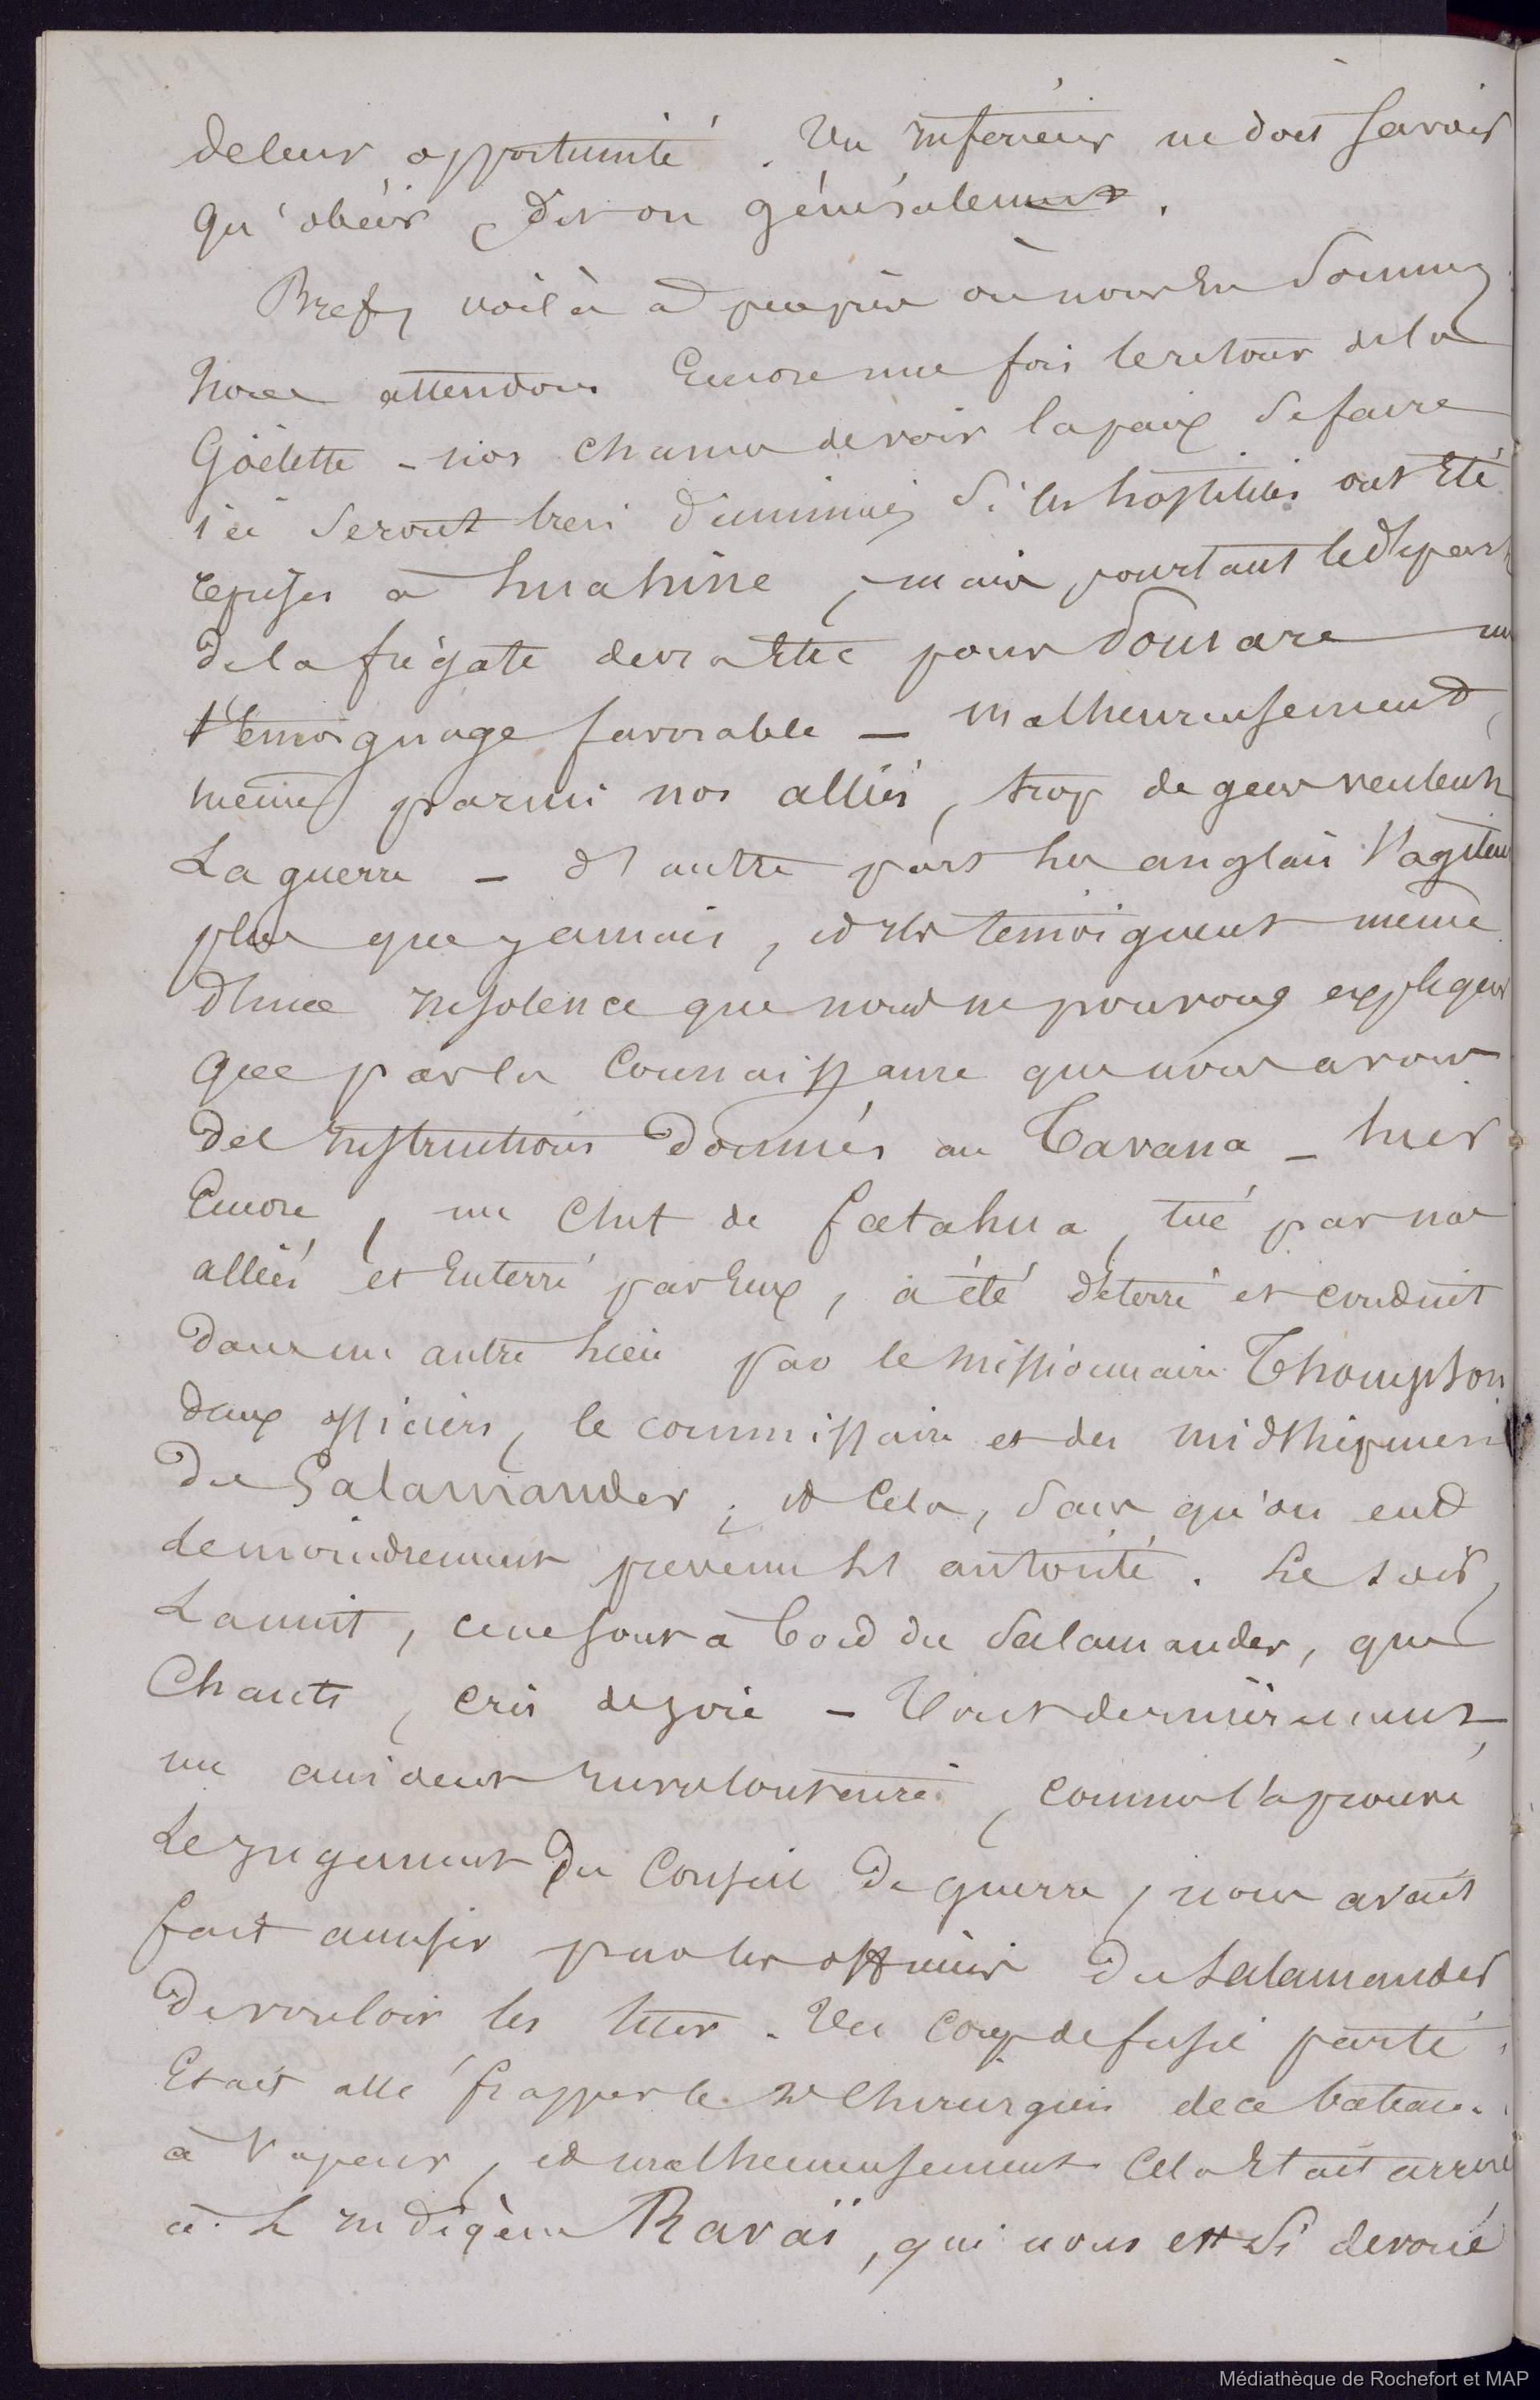 de leur opportunité. Un inférieur ne doit savoir
qu'obéir, dit on généralement.
Bref, voilà à peu près où nous en sommes
Nous attendons encore une fois le retour de la
Goëlette - nos chances de voir la paix se faire
ici seront bien diminuées si les hostilités ont été
reprises à huahine, mais pourtant le départ
de la frégate devra être pour Sourare un
témoignage favorable - malheureusement,
même parmi nos alliés, trop de gens veulent
La guerre - d'autre part les anglais s'agitent
plus que jamais, et ils témoignent même
d'une insolence que nous ne pouvons expliquer
que par la connaissance que nous avons
des instructions données au Tavana - hier
Encore, un chef de fatahua, tué par nos
alliés et enterré par eux, a été déterré et conduit
dans un autre lieu par le missionnaire Thompson
deux officiers, le commissaire et des midshipmen
du Salamander; et cela, sans qu'on eut
le moindrement prévenu les autorités. Le soir,
La nuit, ce ne sont à bord du Salamander, que
Chants, cris de joie - Tout dernièrement,
un accident involontaire, comme l'a prouvé
Le jugement du Conseil de guerre, nous avait
fait accuser par les officiers du Salamander
de vouloir les tuer. Un coup de fusil parti,
Etait allé frapper le 2e chirurgien de ce bateau
à vapeur, et malheureusement cela était arrivé
à l'indigène Ravaï, qui nous est si dévoué
Médiathèque de Rochefort et MAP